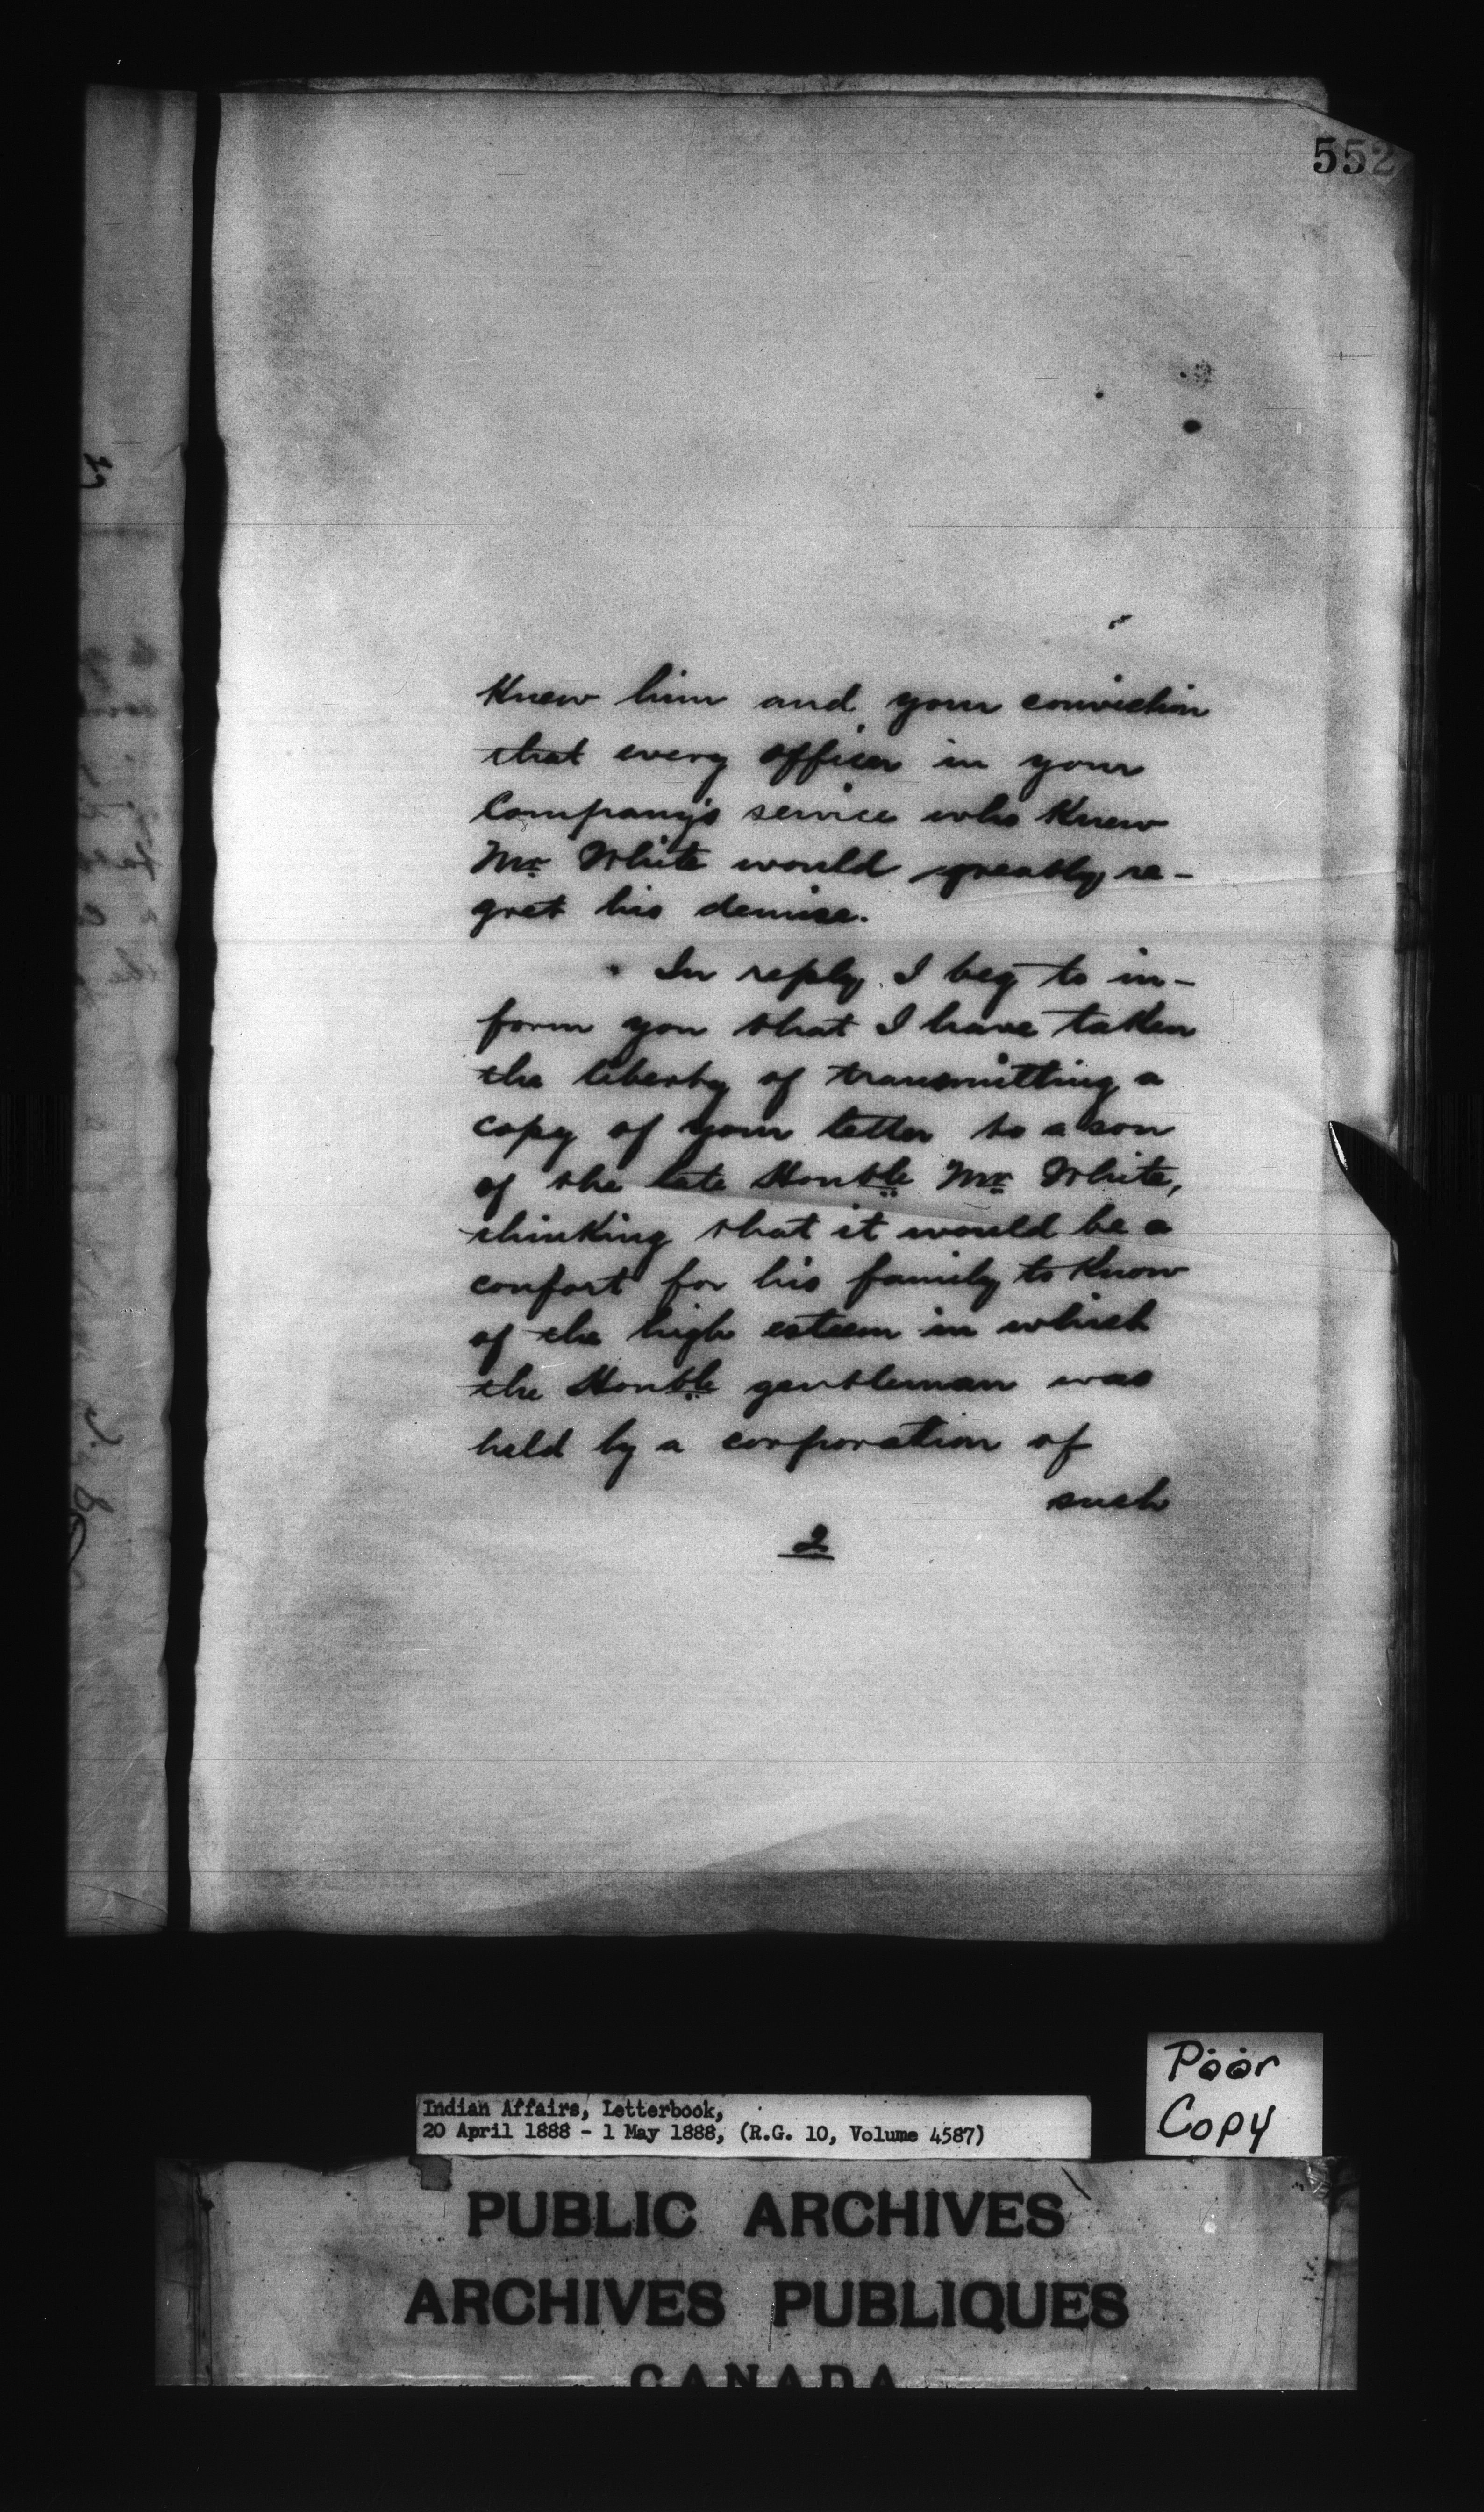 552
Knew him and your conviction
that every officer in your
Company's service who Knew
Mr White would greatly re-
gret his demise.
In reply, I beg to in-
form you that I have taken
the liberty of transmitting a
copy of your letter to a son
of the late Honble Mr White,
thinking that it would be a
confort for his family to Know
of the high esteem in which
the Honble gentleman was
held by a corporation of
such
2
Poor
Copy
Indian Affairs, Letterbook,
20 April 1888 - 1 May 1888, (R.G. 10, Volume 4587)
PUBLIC ARCHIVES
ARCHIVES PUBLIQUES
CANADA